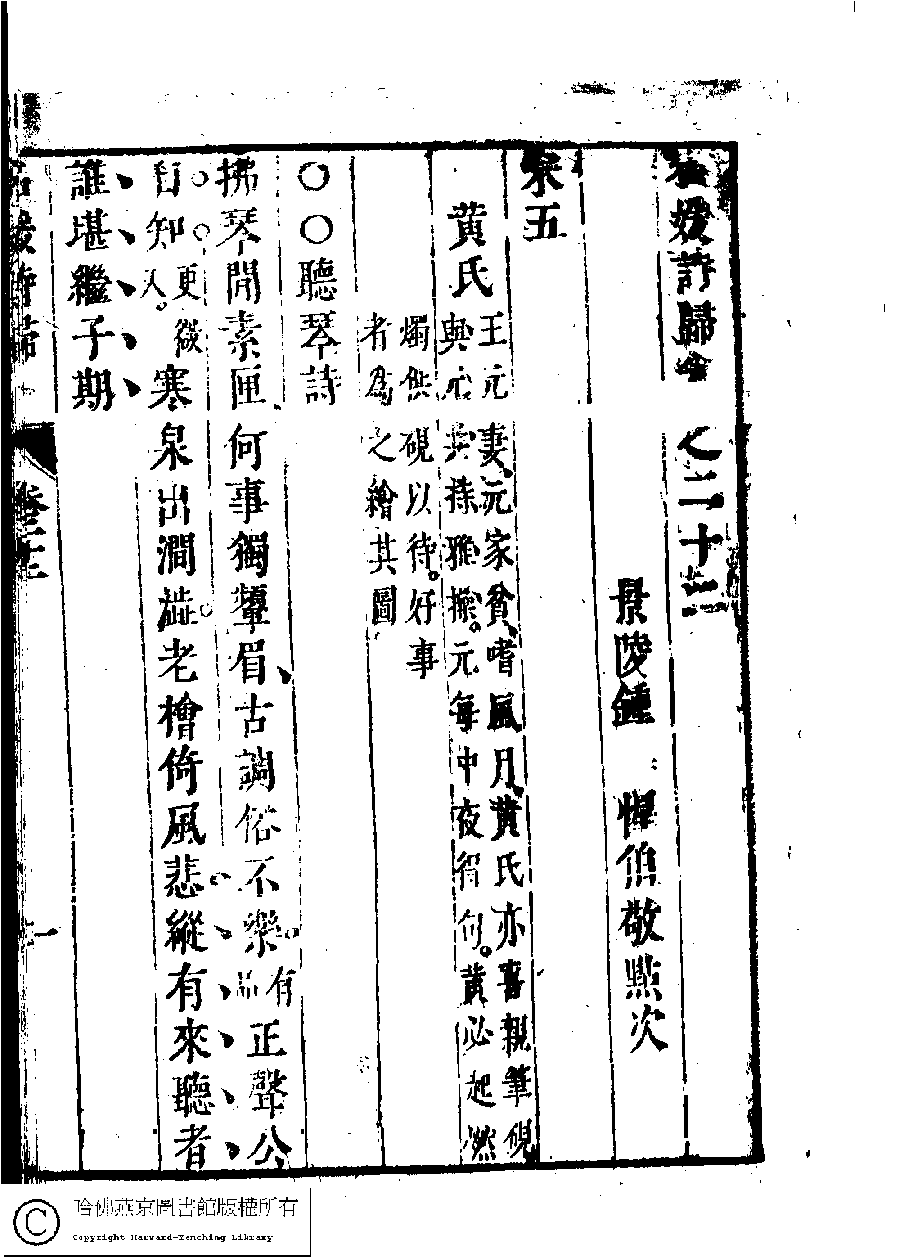 名媛詩歸卷之二十二
景陵鍾 惺伯敬點次
宋五
黃氏
王元妻元家貧嗜風月黃氏亦喜親筆硯
與元共持雅操。元每中夜得句。黃必起燃
燭供硯以待。好事
者為之繪其圖
〇〇聽琴詩
拂琴開素匣何事獨顰眉古調俗不樂。有品正聲公
自知人。更微寒泉出澗澁老檜倚風悲縱有來聽者
誰堪繼子期
名媛詩歸
一
哈佛燕京圖書館版權所有
Copyright Harvard-Yenching Library